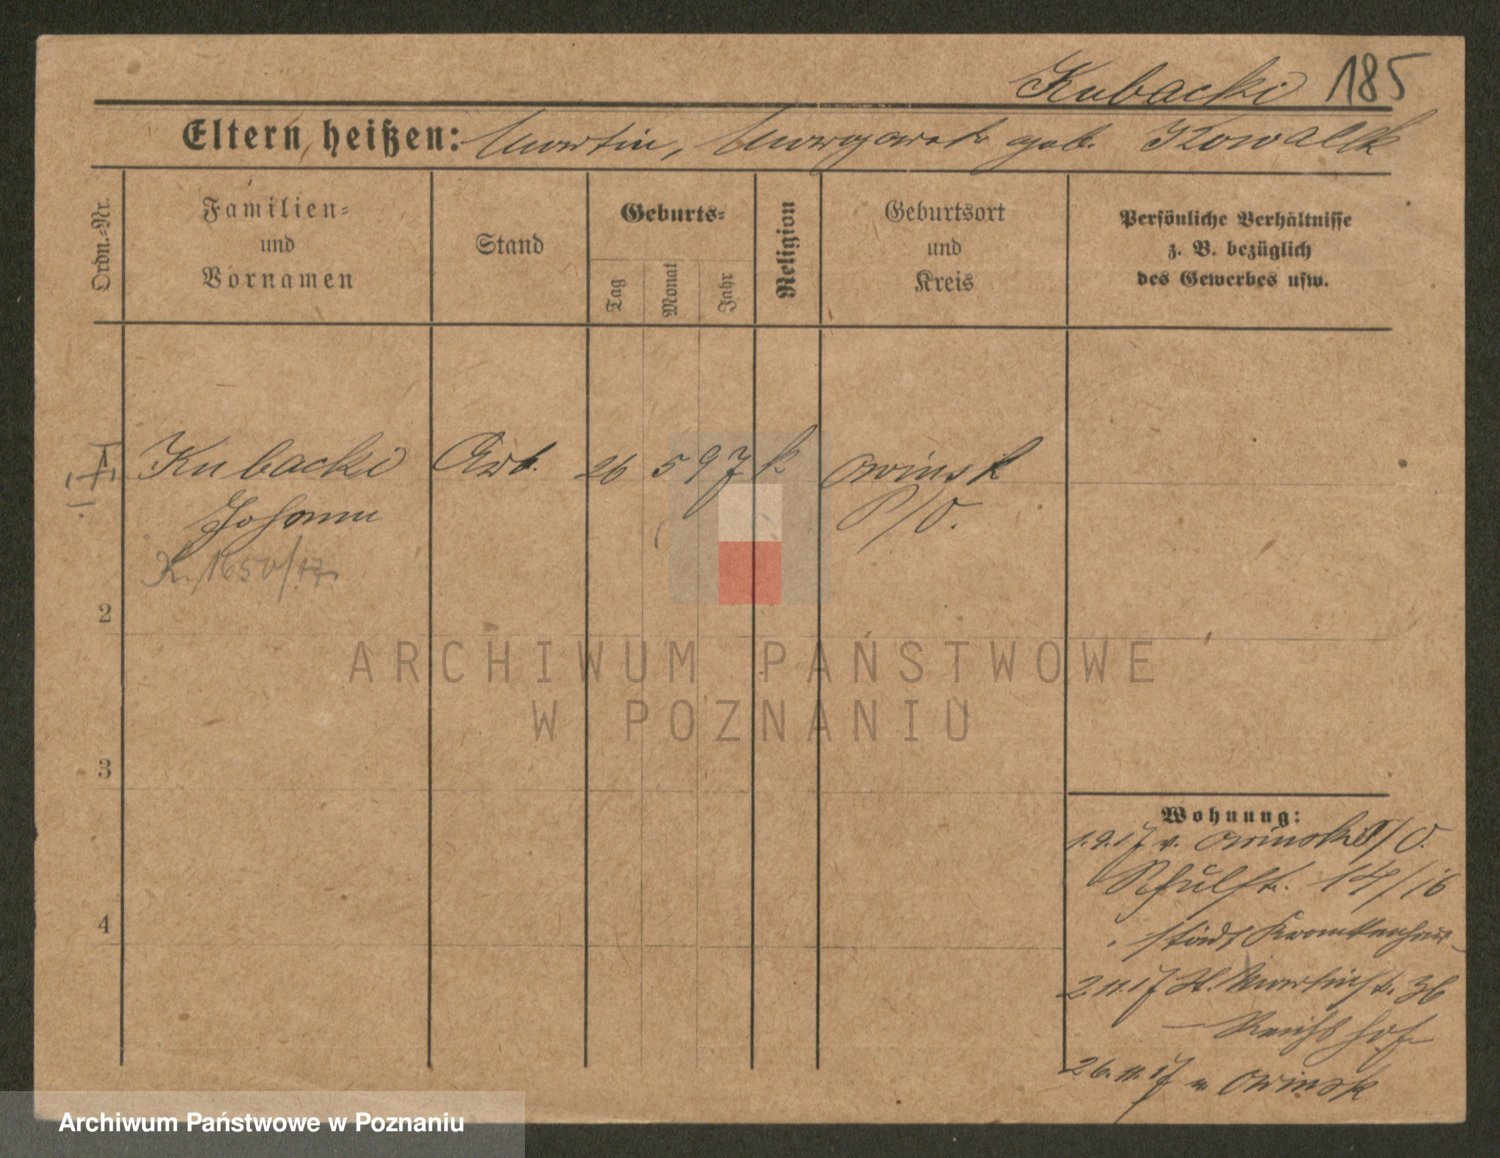 Kubacki 185
Eltern heißen: Martin, Margareta geb. Kowalek
Ordn.-Nr.
Familien-
und
Vornamen
Stand
Geburts-
Tag
Monat
Jahr
Religion
Geburtsort
und
Kreis
Persönliche Verhältnisse
z. B. bezüglich
des Gewerbes usw.
1 Kubacki Arb. 26 5 97 k. Owinsk
Johann P/O.
K. 1650/17.
2
3
4
Wohnung:
1.9.17 v. Owinsk P/O.
Schulstr. 14/16
städt Krankenhaus
2.11.17 St. Martinstr. 36
Reichshof
26.11.17 n Owinsk
ARCHIWUM PAŃSTWOWE
W POZNANIU
Archiwum Państwowe w Poznaniu